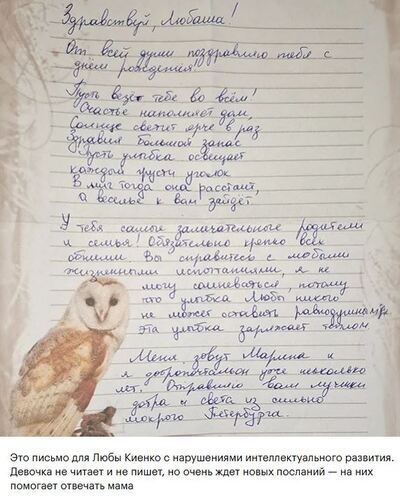 Здравствуй, Любаша!
От всей души поздравляю тебя с
днём рождения!
Пусть везёт тебе во всём!
Счастье наполняет дом,
Солнце светит ярче в раз
Здравия большой запас
Пусть улыбка освещает
каждый грусти уголок
В миг тогда она растает,
а веселье к вам зайдёт
У тебя самые замечательные родители
и семья! Обязательно крепко всех
обними. Вы справитесь с любыми
жизненными испытаниями, я не
могу сомневаться, потому
что улыбка Любы никого
не может оставить равнодушным,
эта улыбка заряжает теплом
Меня зовут Марина и
я доброчтальон уже несколько
лет. Отправляю вам лучики
добра и света из сильно
мокрого Петербурга.
Это письмо для Любы Киенко с нарушениями интеллектуального развития.
Девочка не читает и не пишет, но очень ждет новых посланий — на них
помогает отвечать мама